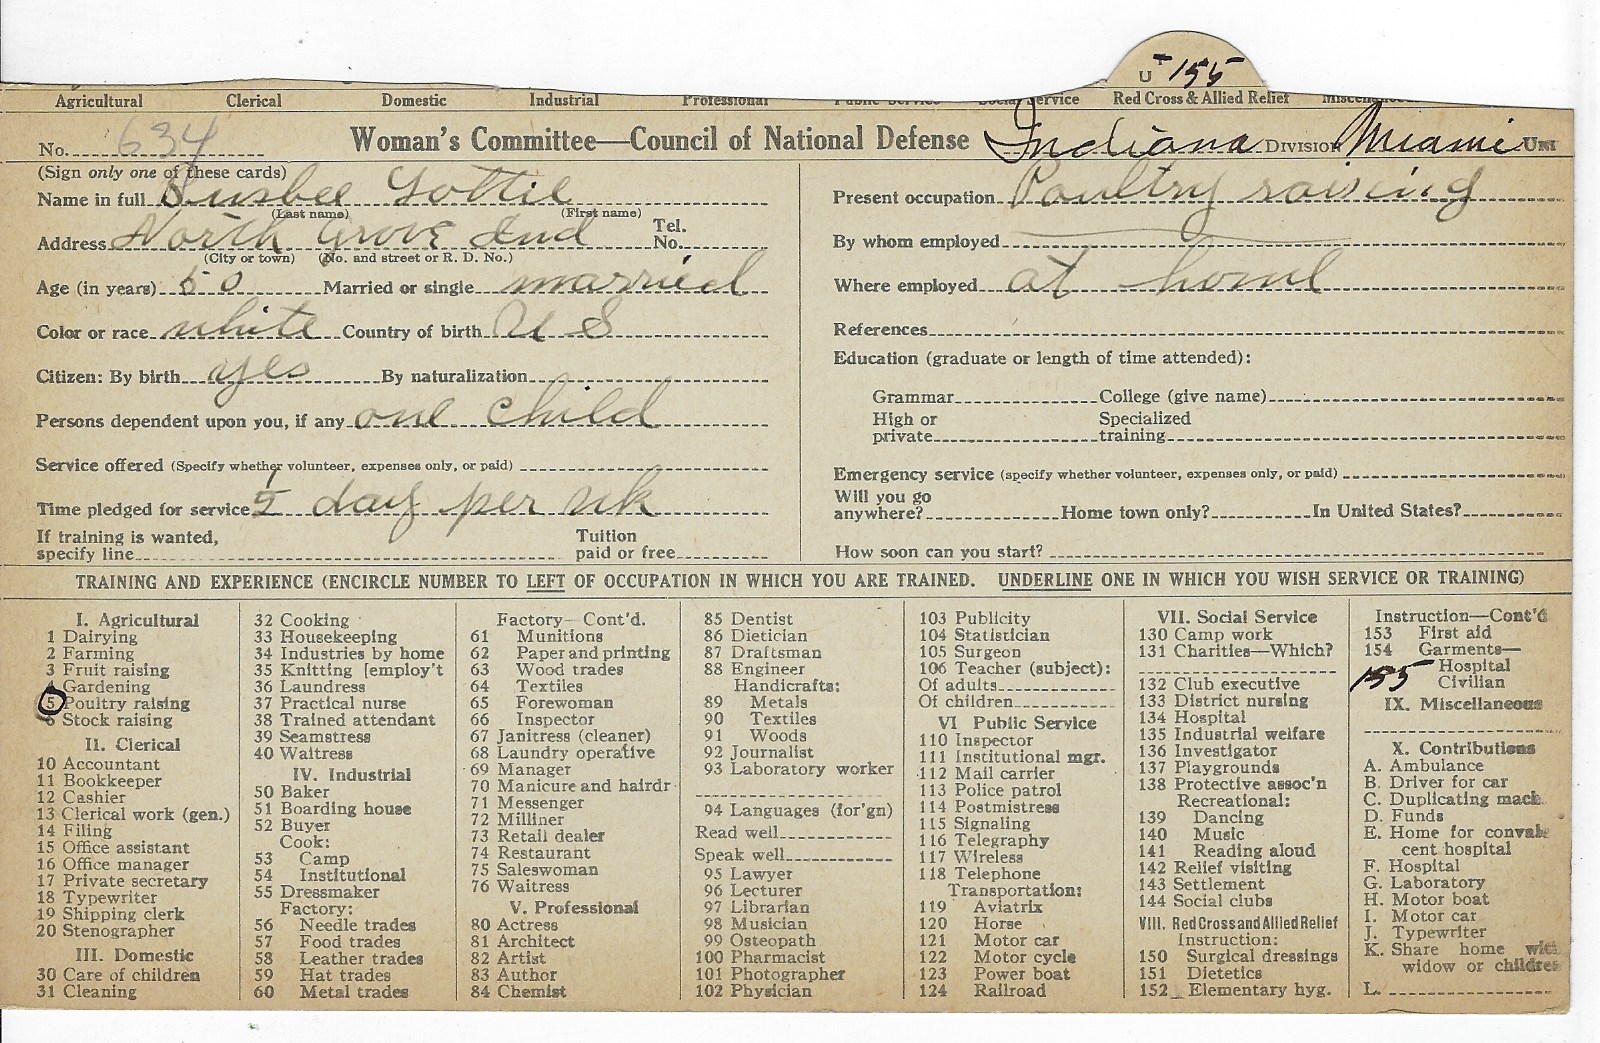 UT 155
Agricultural Clerical Domestic Industrial Professional Public Service Social Service Red Cross & Allied Relief
No. 634 Woman's Committee—Council of National Defense Indiana Division Miami Unit
(Sign only one of these cards)
Name in full Busbee Lottie
(Last name) (First name)
Address North Grove Ind Tel. No.
(City or town) (No. and street or R. D. No.)
Age (in years) 50 Married or single married
Color or race white Country of birth U S
Citizen: By birth yes By naturalization
Persons dependent upon you, if any one child
Service offered (Specify whether volunteer, expenses only, or paid)
Time pledged for service 1/2 day per wk
If training is wanted, Tuition
specify line paid or free
Present occupation Poultry raising
By whom employed
Where employed at home
References
Education (graduate or length of time attended):
Grammar College (give name)
High or Specialized
private training
Emergency service (specify whether volunteer, expenses only, or paid)
Will you go
anywhere? Home town only? In United States?
How soon can you start?
TRAINING AND EXPERIENCE (ENCIRCLE NUMBER TO LEFT OF OCCUPATION IN WHICH YOU ARE TRAINED. UNDERLINE ONE IN WHICH YOU WISH SERVICE OR TRAINING)
I. Agricultural
1 Dairying
2 Farming
3 Fruit raising
4 Gardening
5 Poultry raising
6 Stock raising
II. Clerical
10 Accountant
11 Bookkeeper
12 Cashier
13 Clerical work (gen.)
14 Filing
15 Office assistant
16 Office manager
17 Private secretary
18 Typewriter
19 Shipping clerk
20 Stenographer
III. Domestic
30 Care of children
31 Cleaning
32 Cooking
33 Housekeeping
34 Industries by home
35 Knitting [employ't
36 Laundress
37 Practical nurse
38 Trained attendant
39 Seamstress
40 Waitress
IV. Industrial
50 Baker
51 Boarding house
52 Buyer
Cook:
53 Camp
54 Institutional
55 Dressmaker
Factory:
56 Needle trades
57 Food trades
58 Leather trades
59 Hat trades
60 Metal trades
Factory—Cont'd.
61 Munitions
62 Paper and printing
63 Wood trades
64 Textiles
65 Forewoman
66 Inspector
67 Janitress (cleaner)
68 Laundry operative
69 Manager
70 Manicure and hairdr
71 Messenger
72 Milliner
73 Retail dealer
74 Restaurant
75 Saleswoman
76 Waitress
V. Professional
80 Actress
81 Architect
82 Artist
83 Author
84 Chemist
85 Dentist
86 Dietician
87 Draftsman
88 Engineer
Handicrafts:
89 Metals
90 Textiles
91 Woods
92 Journalist
93 Laboratory worker
94 Languages (for'gn)
Read well
Speak well
95 Lawyer
96 Lecturer
97 Librarian
98 Musician
99 Osteopath
100 Pharmacist
101 Photographer
102 Physician
103 Publicity
104 Statistician
105 Surgeon
106 Teacher (subject):
Of adults
Of children
VI Public Service
110 Inspector
111 Institutional mgr.
112 Mail carrier
113 Police patrol
114 Postmistress
115 Signaling
116 Telegraphy
117 Wireless
118 Telephone
Transportation:
119 Aviatrix
120 Horse
121 Motor car
122 Motor cycle
123 Power boat
124 Railroad
VII. Social Service
130 Camp work
131 Charities—Which?
132 Club executive
133 District nursing
134 Hospital
135 Industrial welfare
136 Investigator
137 Playgrounds
138 Protective assoc'n
Recreational:
139 Dancing
140 Music
141 Reading aloud
142 Relief visiting
143 Settlement
144 Social clubs
VIII. Red Cross and Allied Relief
Instruction:
150 Surgical dressings
151 Dietetics
152 Elementary hyg.
Instruction—Cont'd
153 First aid
154 Garments—
Hospital
155 Civilian
IX. Miscellaneous
X. Contributions
A. Ambulance
B. Driver for car
C. Duplicating mach.
D. Funds
E. Home for convale
cent hospital
F. Hospital
G. Laboratory
H. Motor boat
I. Motor car
J. Typewriter
K. Share home with
widow or children
L.